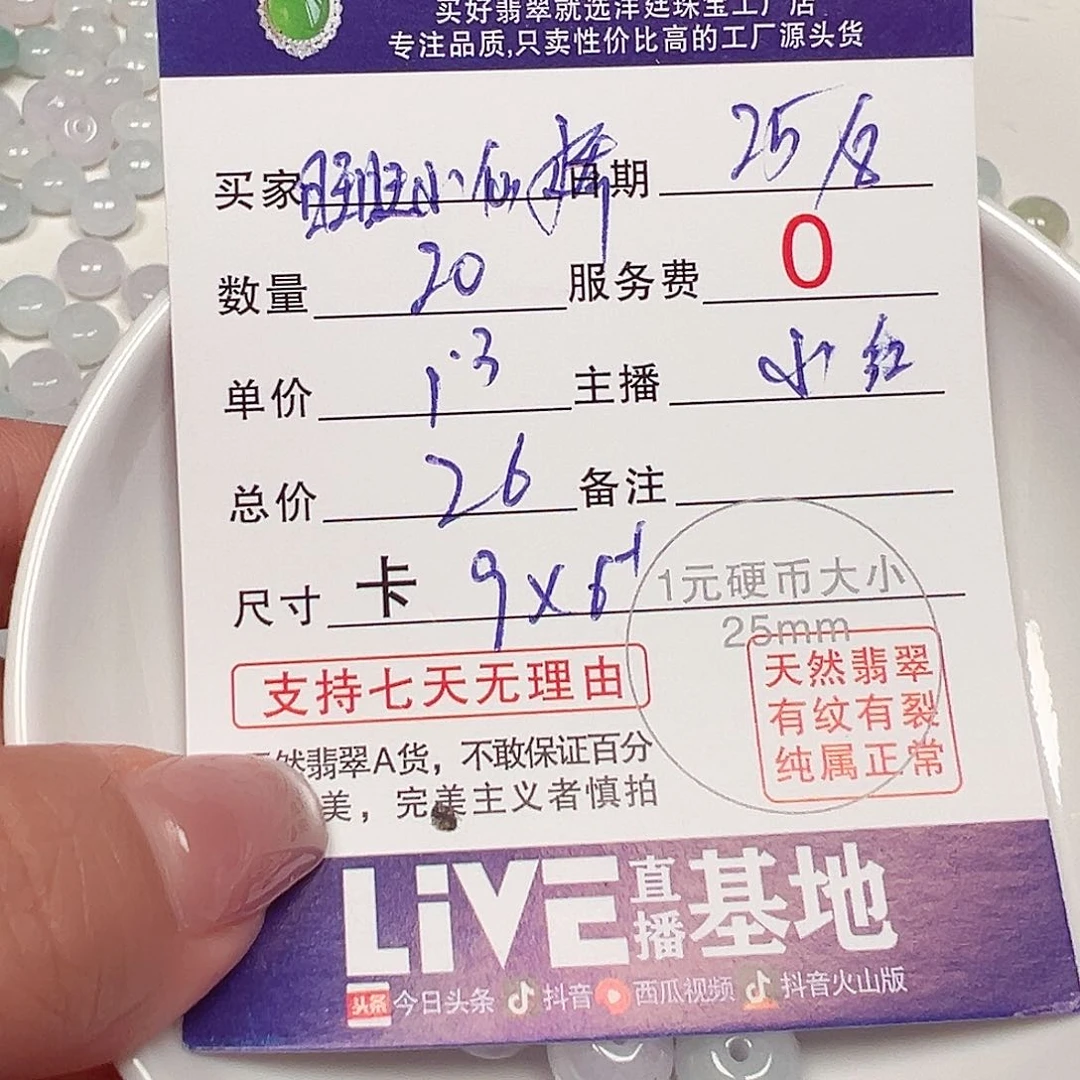 买好翡翠就选洋廷珠宝工厂店
专注品质,只卖性价比高的工厂源头货
买家 旺旺小仙 日期 25/8
数量 20 服务费 0
单价 1.3 主播 小红
总价 26 备注
尺寸 卡 9×6+
1元硬币大小
25mm
支持七天无理由
天然翡翠
有纹有裂
纯属正常
然翡翠A货，不敢保证百分
美，完美主义者慎拍
LiVE 直播基地
头条 今日头条 抖音 西瓜视频 抖音火山版